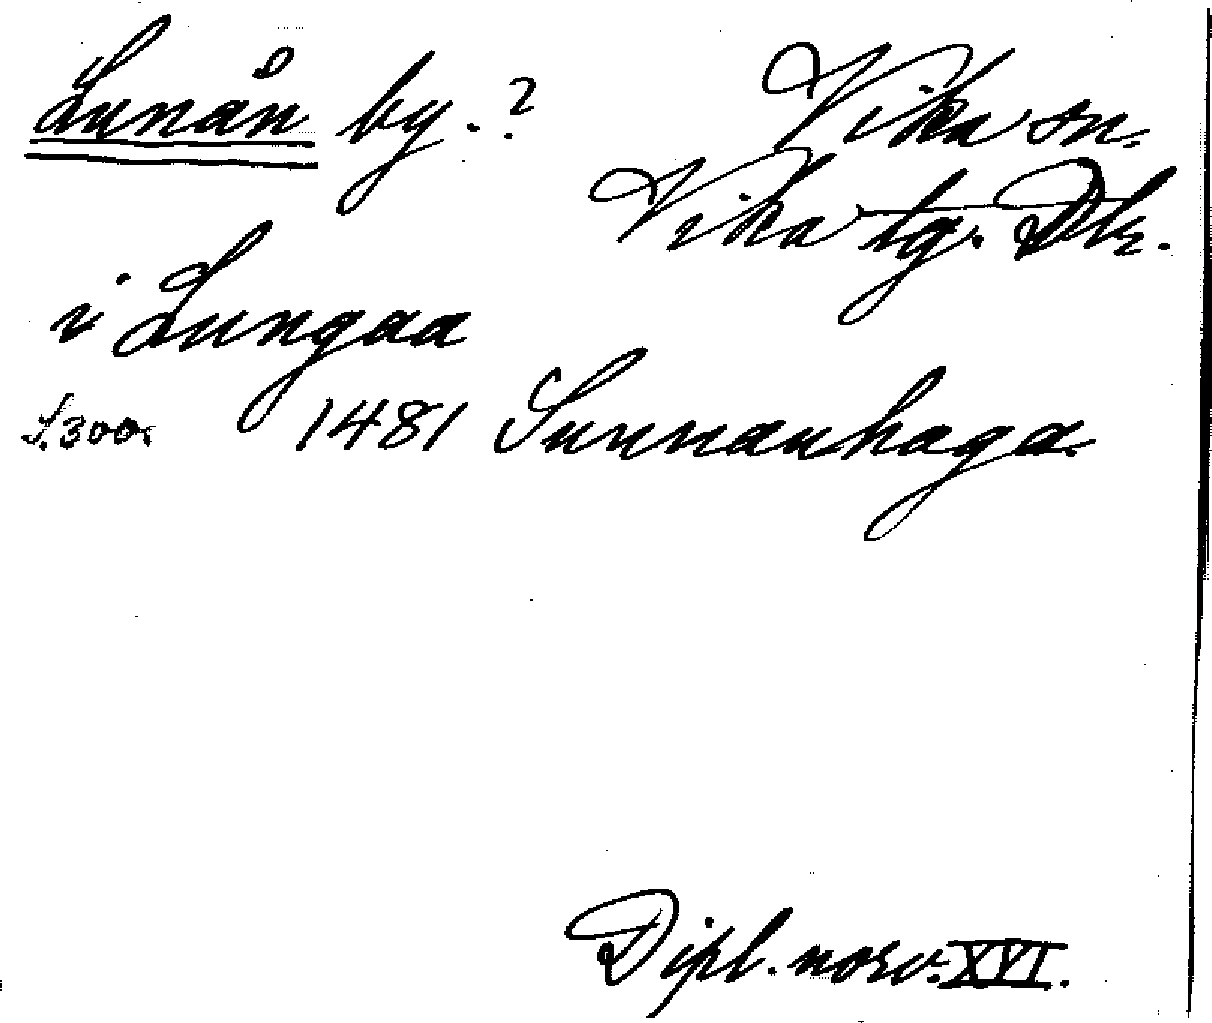 Lunån by.?
Vika sn.
Vika tg. Dlr.
i Lungaa
S.300. 1481 Sunnanhaga.
Dipl. norv. XVI.